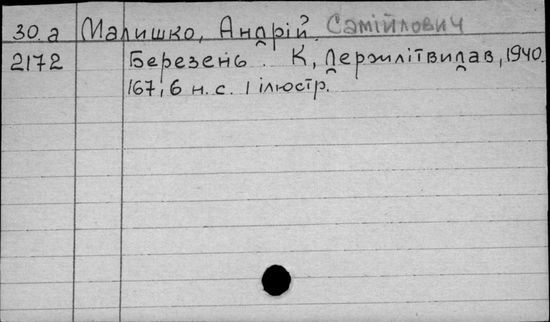 30.а Малишко, Андрій. Самійлович
2172 Березень. К, Держлітвидав, 1940.
167, 6 н.с. 1 ілюстр.